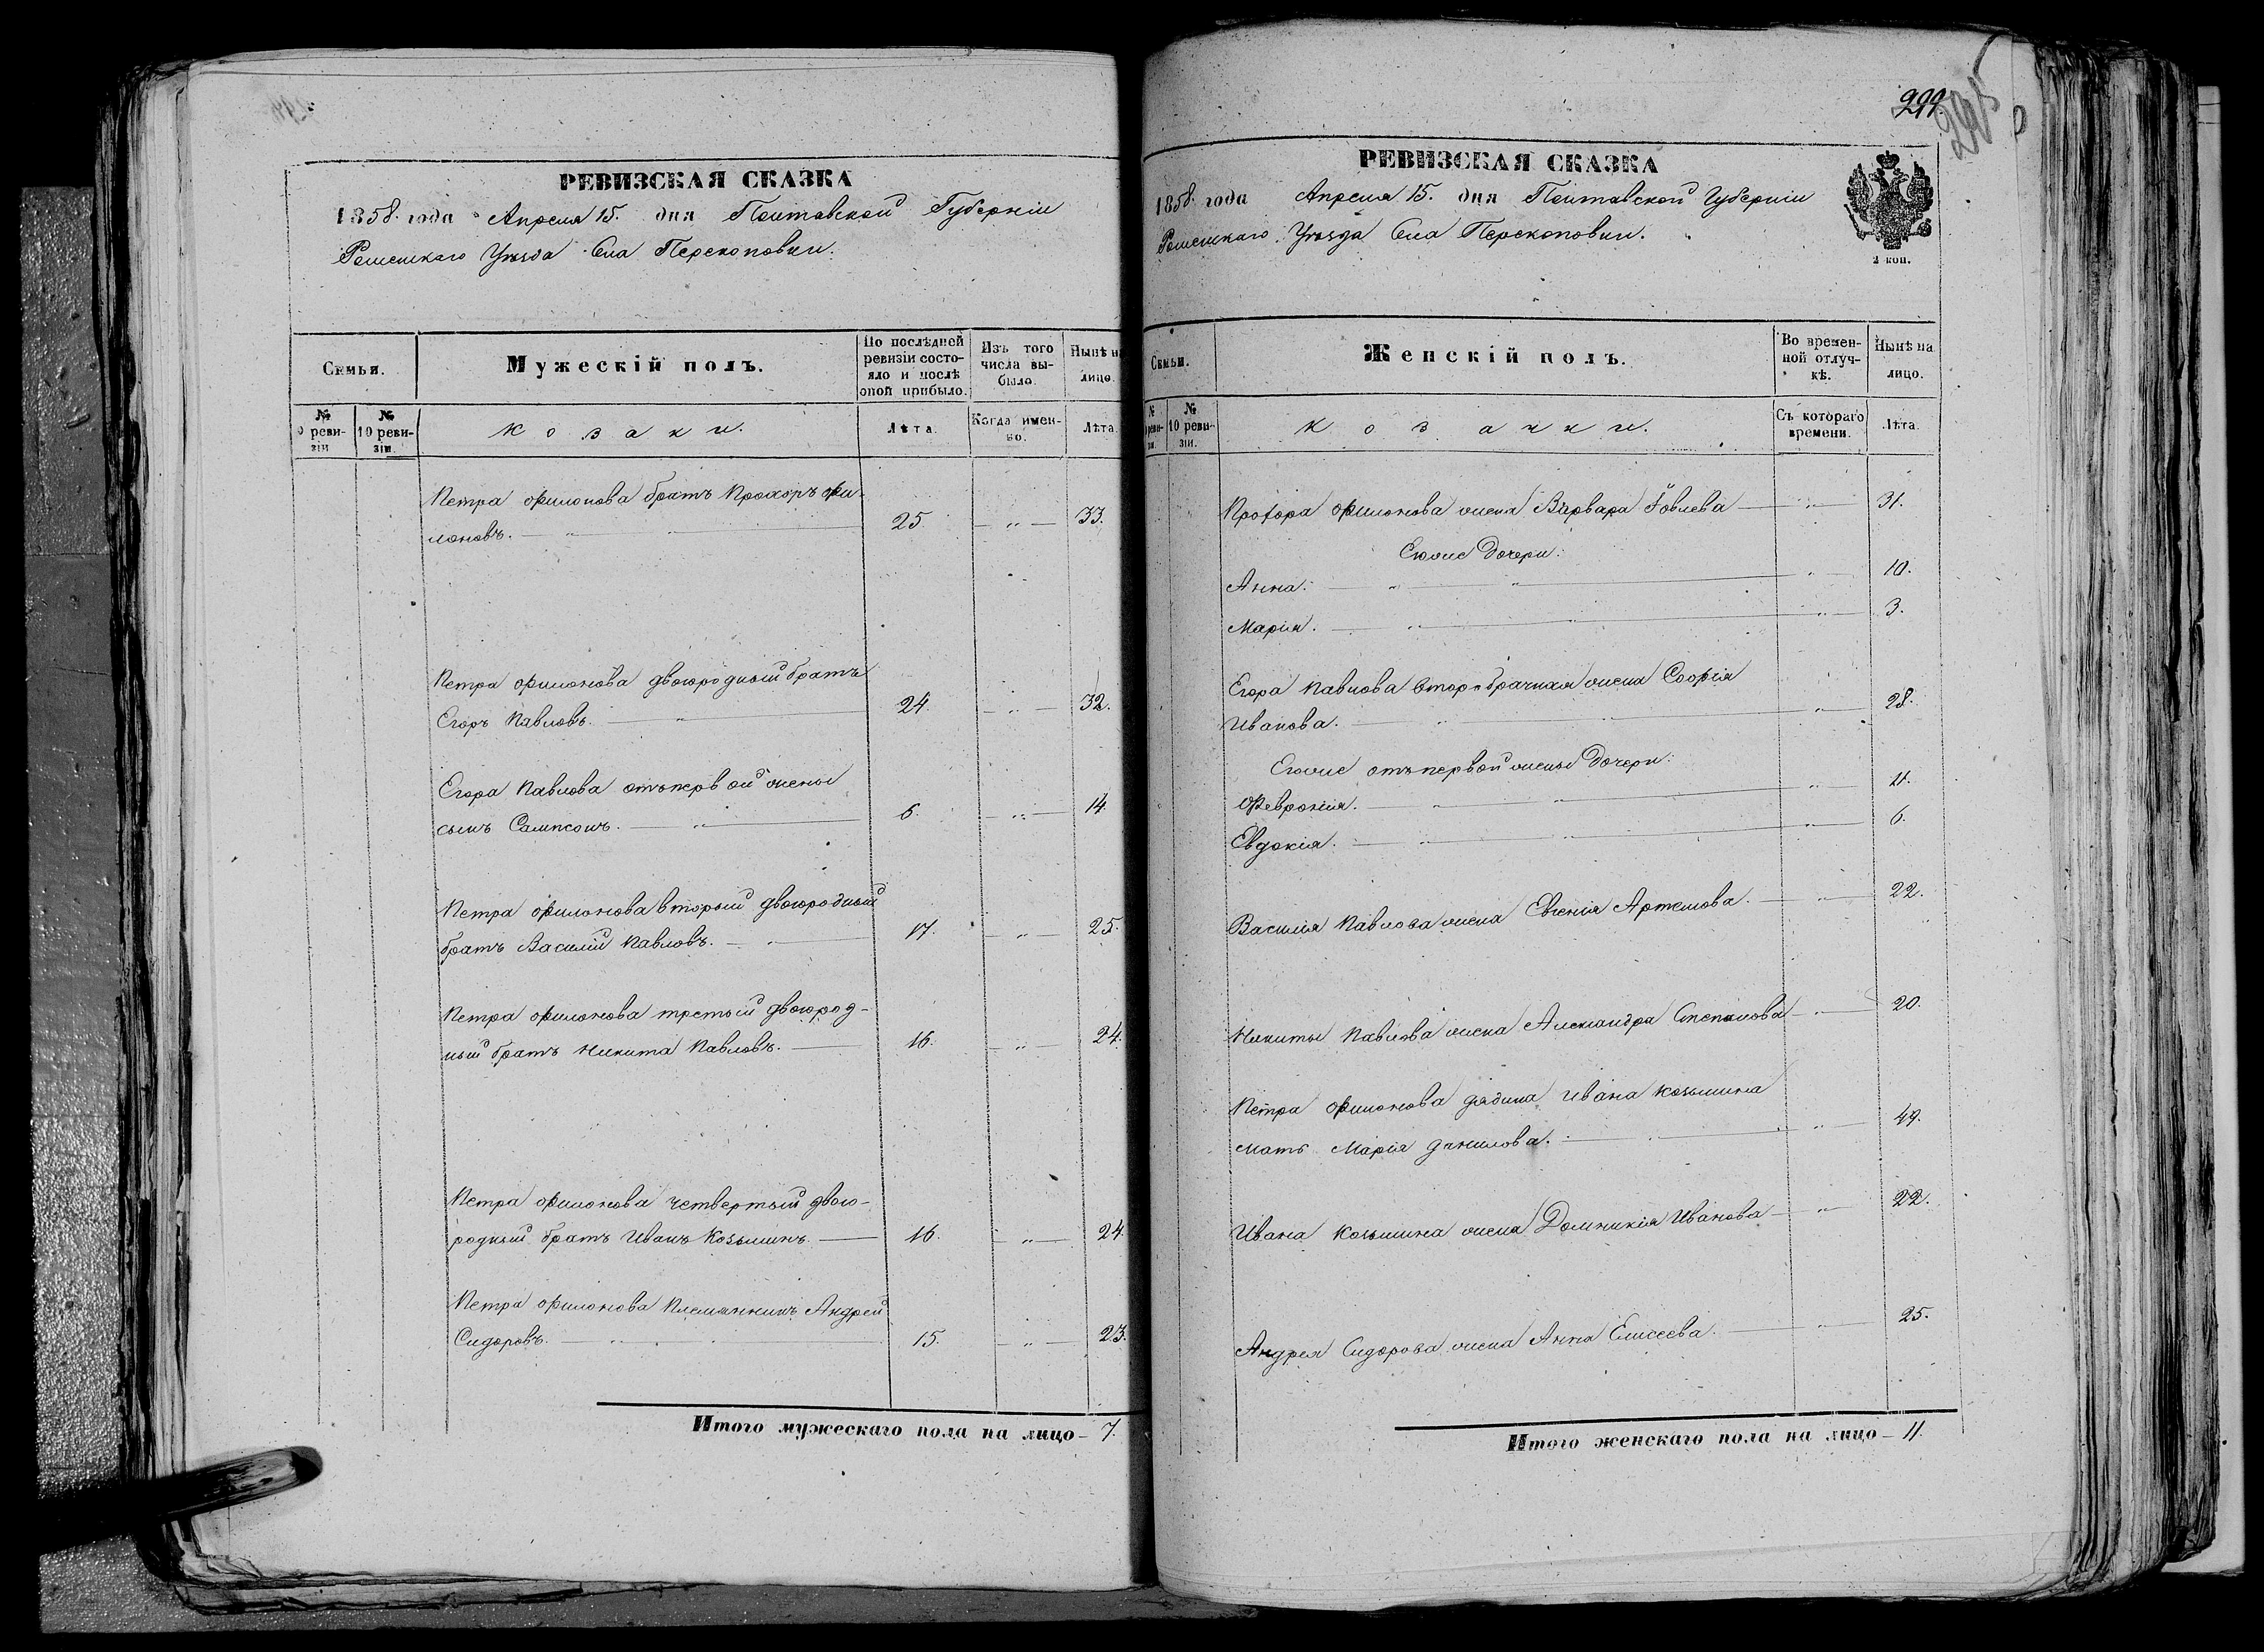 РЕВИЗСКАЯ СКАЗКА
1858 года Апреля 15. дня Полтавской Губерніи
Роменскаго Уѣзда Села Перекоповки.
Семьи.
Мужескій полъ.
По послѣдней ревизіи состояло и послѣ оной прибыло.
Изъ того числа выбыло.
Нынѣ на лицо.
№ ревизіи
№ 10 ревизіи.
козаки.
Лѣта.
Когда именно.
Лѣта.
Петра Филонова братъ Прохоръ Фи-
лоновъ. 25 — " — 33.
Петра Филонова двоюродный братъ
Егоръ Павловъ. 24. — " — 32.
Егора Павлова отъ первой жены
сынъ Сампсонъ. 6. — " — 14
Петра Филонова вторый двоюродный
братъ Василій Павловъ. 17. — " — 25.
Петра Филонова третый двоюрод-
ный братъ Никита Павловъ. 16. — " — 24.
Петра Филонова четвертый двою-
родный братъ Иванъ Козьминъ. 16. — " — 24.
Петра Филонова племянникъ Андрей
Сидоровъ. 15. — " — 23.
Итого мужескаго пола на лицо — 7.
299.
295
РЕВИЗСКАЯ СКАЗКА
1858 года Апреля 15. дня Полтавской Губерніи
Роменскаго Уѣзда Села Перекоповки.
2 коп.
Семьи.
Женскій полъ.
Во временной отлучкѣ.
Нынѣ на лицо.
№ ревизіи
№ 10 ревизіи.
козачки.
Съ котораго времени.
Лѣта.
Прохора Филонова жена Варвара Іовлева — " — 31.
Егоже дочери:
Анна. — " — 10.
Марія. — " — 3.
Егора Павлова второбрачная жена Софія
Иванова. — " — 28.
Егоже отъ первой жены дочери:
Февронія. — " — 11.
Евдокія. — " — 6.
Василія Павлова жена Евгенія Артемова. — " — 22.
Никиты Павлова жена Александра Степанова — " — 20.
Петра Филонова дядина Ивана Козьмина
мать Марія Данилова. — " — 49.
Ивана Козьмина жена Домникія Иванова — " — 22.
Андрея Сидорова жена Анна Елисеева. — " — 25.
Итого женскаго пола на лицо — 11.